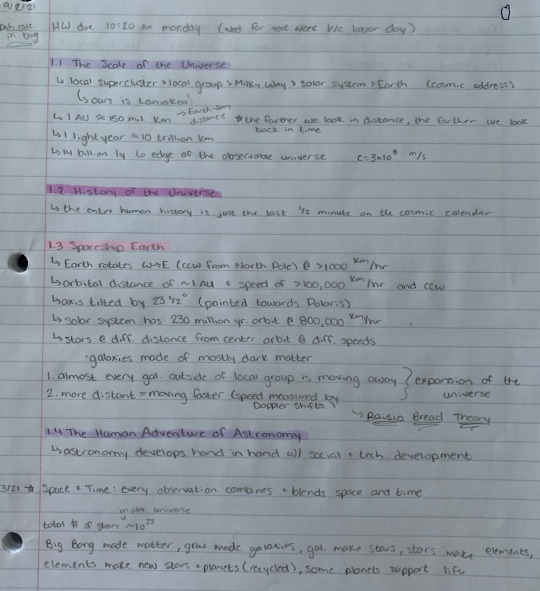 9/2/21
HW due 10:20 AM Monday (wed for next week b/c labor day)
in bag
1.1 The Scale of the Universe
↳ local supercluster > local group > Milky Way > solar system > Earth (cosmic address)
↳ ours is Laniakea
↳ 1 AU ≈ 150 mil. km → Earth-sun distance * the farther we look in distance, the farther we look back in time
↳ 1 lightyear ≈ 10 trillion km
↳ 14 billion ly to edge of the observable universe c = 3x10⁸ m/s
1.2 History of the Universe
↳ the entire human history is just the last 1/2 minute on the cosmic calendar
1.3 Spaceship Earth
↳ Earth rotates W→E (ccw from North Pole) @ >1000 km/hr
↳ orbital distance of ~1 AU + speed of >100,000 km/hr and ccw
↳ axis tilted by 23 1/2° (pointed towards Polaris)
↳ solar system has 230 million yr. orbit @ 800,000 km/hr
↳ stars @ diff. distance from center orbit @ diff. speeds
· galaxies made of mostly dark matter
1. almost every gal. outside of local group is moving away } expansion of the universe
2. more distant = moving faster (speed measured by Doppler Shifts)
↳ Raisin Bread Theory
1.4 The Human Adventure of Astronomy
↳ astronomy develops hand in hand w/ social + tech. development
3/21 * Space + Time: every observation combines + blends space and time
total # of stars in obs. universe ~10²²
Big Bang made matter, grav made galaxies, gal make stars, stars make elements,
elements make new stars + planets (recycled), some planets support life